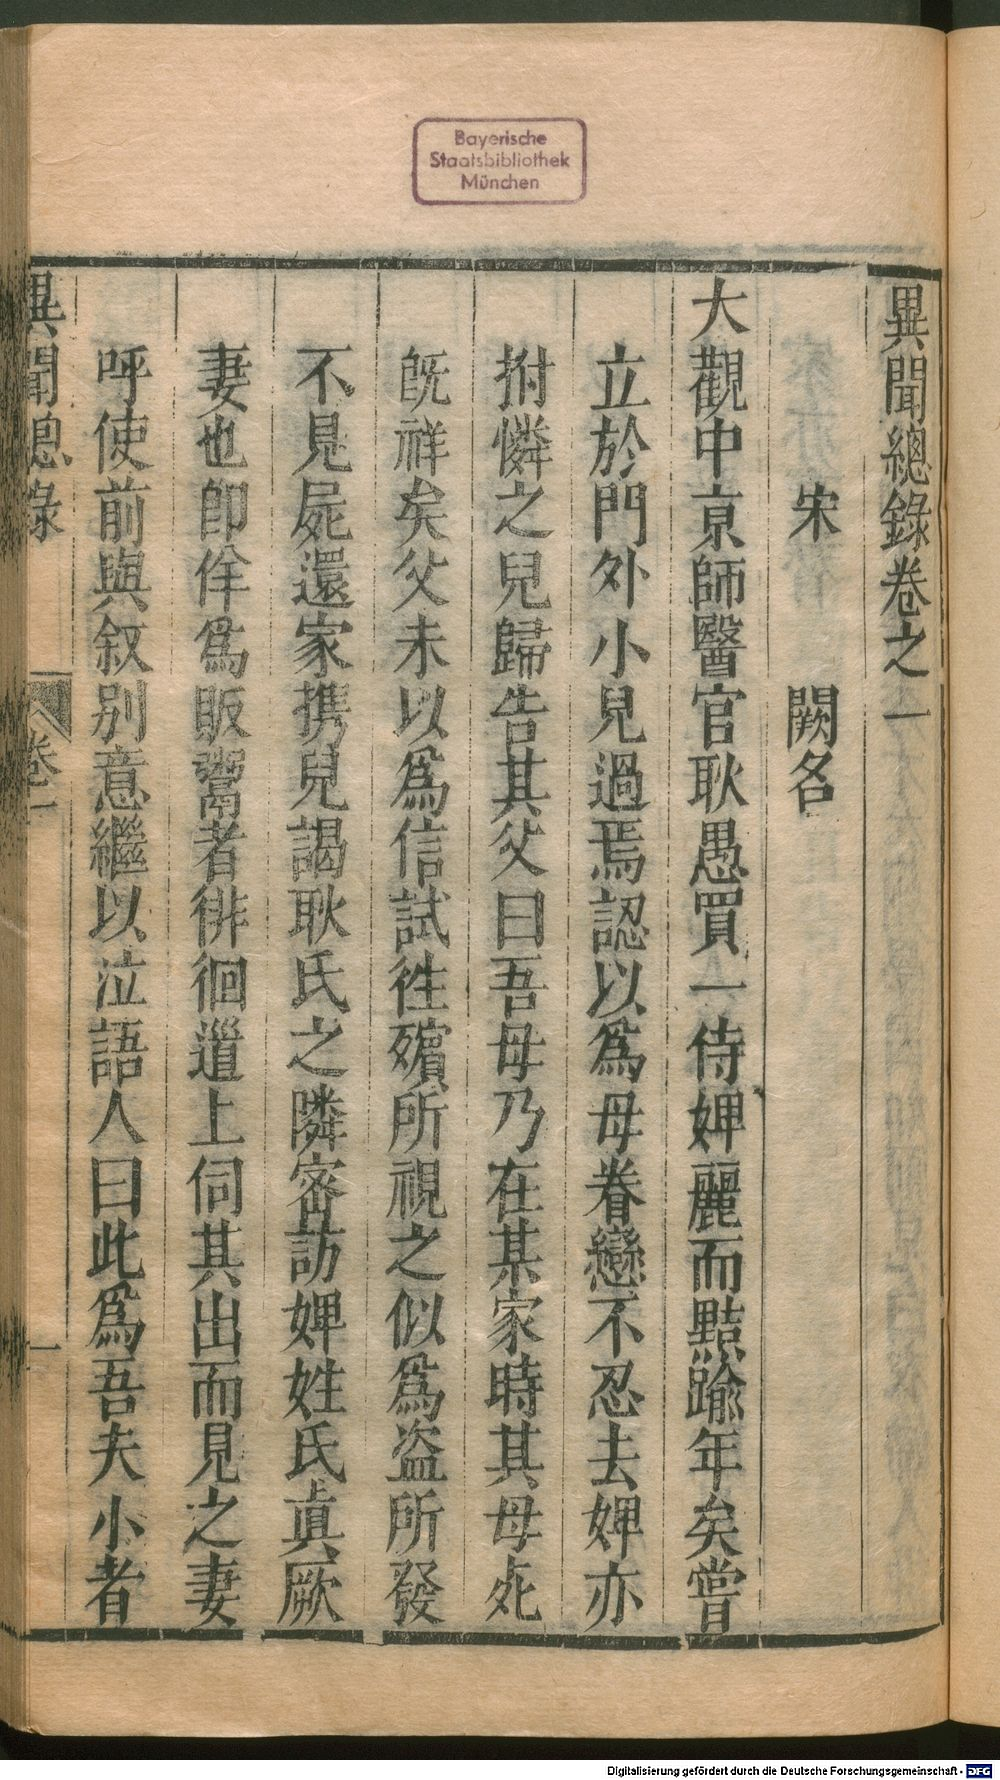 Bayerische
Staatsbibliothek
München
異聞總錄卷之一
宋　闕名
大觀中京師醫官耿愚買一侍婢麗而黠踰年矣嘗
立於門外小兒過焉認以爲母眷戀不忍去婢亦
拊憐之兒歸告其父曰吾母乃在某家時其母死
旣祥矣父未以爲信試徃殯所視之似爲盗所發
不見屍還家携兒謁耿氏之隣密訪婢姓氏眞厥
妻也卽佯爲販鬻者徘徊道上伺其出而見之妻
呼使前與叙別意繼以泣語人曰此爲吾夫小者
異聞總錄
卷一
一
Digitalisierung gefördert durch die Deutsche Forschungsgemeinschaft - DFG